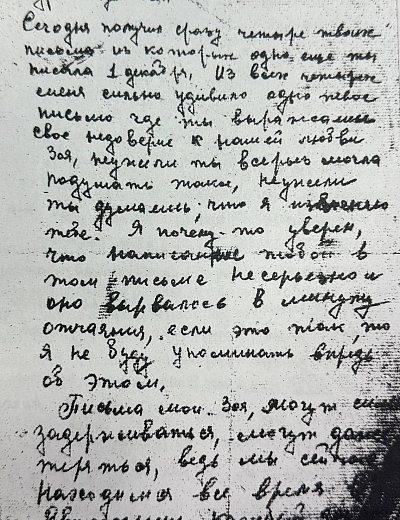 Сегодня получил сразу четыре твоих
письма из которых одно еще ты
писала 1 декабря, Из всех четырех
меня сильно удивило одно твое
письмо где ты выражаешь
свое недоверие к нашей любви
Зоя, неужели ты всерьез могла
подумать такое, неужели
ты думаешь, что я изменяю
тебе. Я почему-то уверен,
что написанное тобой в
том письме несерьезно и
оно вырвалось в минуту
отчаяния, если это так, то
я не буду упоминать впредь
об этом.
Письма мои Зоя, могут
задерживаться, могут даже
теряться, ведь мы сейчас
находимся все время в